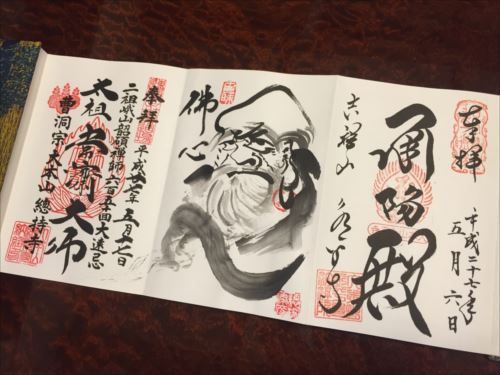 奉拝
平成二十七年
五月六日
承陽殿
吉祥山
永平寺
佛心
奉拝
平成廿七年五月十二日
二祖峨山韶碩禅師六百五十回大遠忌
太祖常済大師
曹洞宗大本山總持寺